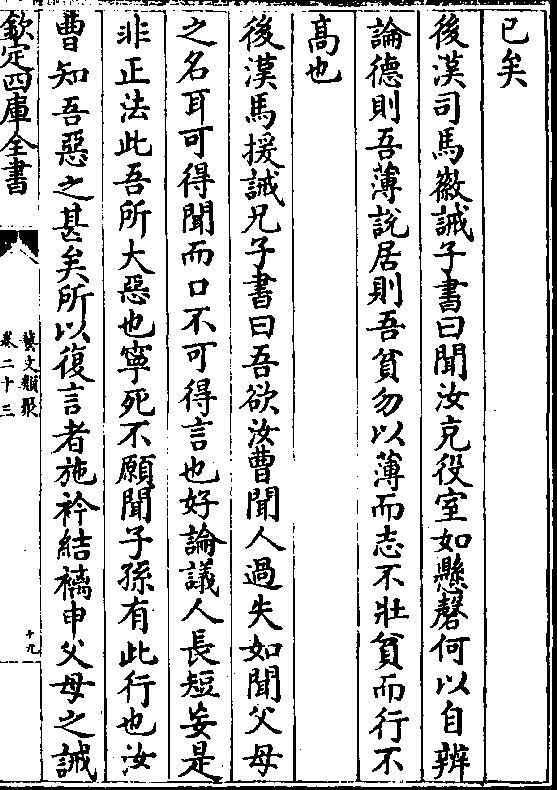 已矣
後漢司馬徽誡子書曰聞汝充役室如懸磬何以自辨
論德則吾薄說居則吾貧勿以薄而志不壯貧而行不
高也
後漢馬援誡兄子書曰吾欲汝曹聞人過失如聞父母
之名耳可得聞而口不可得言也好論議人長短妄是
非正法此吾所大惡也寧死不願聞子孫有此行也汝
曹知吾惡之甚矣所以復言者施衿結褵申父母之誡
欽定四庫全書
藝文類聚
卷二十三
十九